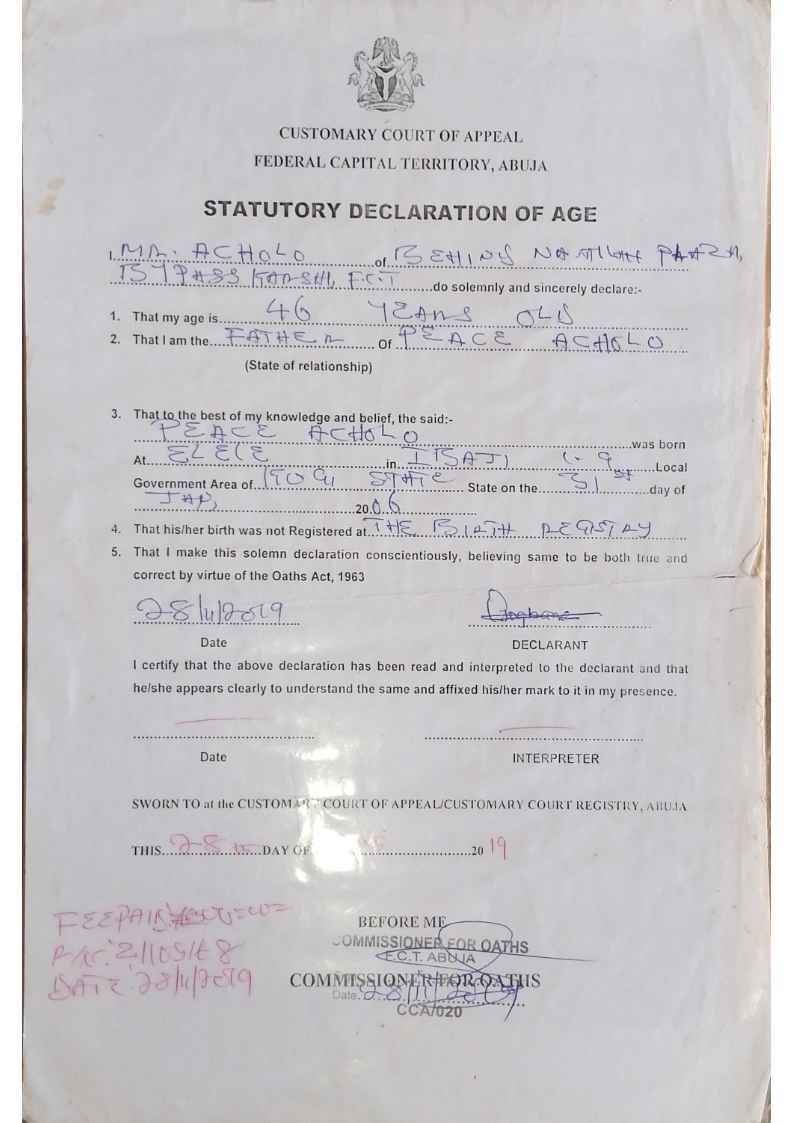 CUSTOMARY COURT OF APPEAL
FEDERAL CAPITAL TERRITORY, ABUJA
STATUTORY DECLARATION OF AGE
I, MR. ACHOLO of BEHIND
BYPASS KARSHI, F.C.T do solemnly and sincerely declare:-
1. That my age is 46 YEARS OLD
2. That I am the FATHER Of PEACE ACHOLO
(State of relationship)
3. That to the best of my knowledge and belief, the said:-
PEACE ACHOLO was born
At in IBAJI L.G Local
Government Area of KOGI STATE State on the 31st day of
JAN, 2006
4. That his/her birth was not Registered at THE BIRTH REGISTRY
5. That I make this solemn declaration conscientiously, believing same to be both true and
correct by virtue of the Oaths Act, 1963
28/11/2019
Date DECLARANT
I certify that the above declaration has been read and interpreted to the declarant and that
he/she appears clearly to understand the same and affixed his/her mark to it in my presence.
Date INTERPRETER
SWORN TO at the CUSTOMARY COURT OF APPEAL/CUSTOMARY COURT REGISTRY, ABUJA
THIS 28 DAY OF 2019
FEE PAID
DATE: 28/11/2019
BEFORE ME
COMMISSIONER FOR OATHS
F.C.T. ABUJA
COMMISSIONER FOR OATHS
Date 28/11/2019
CCA/020